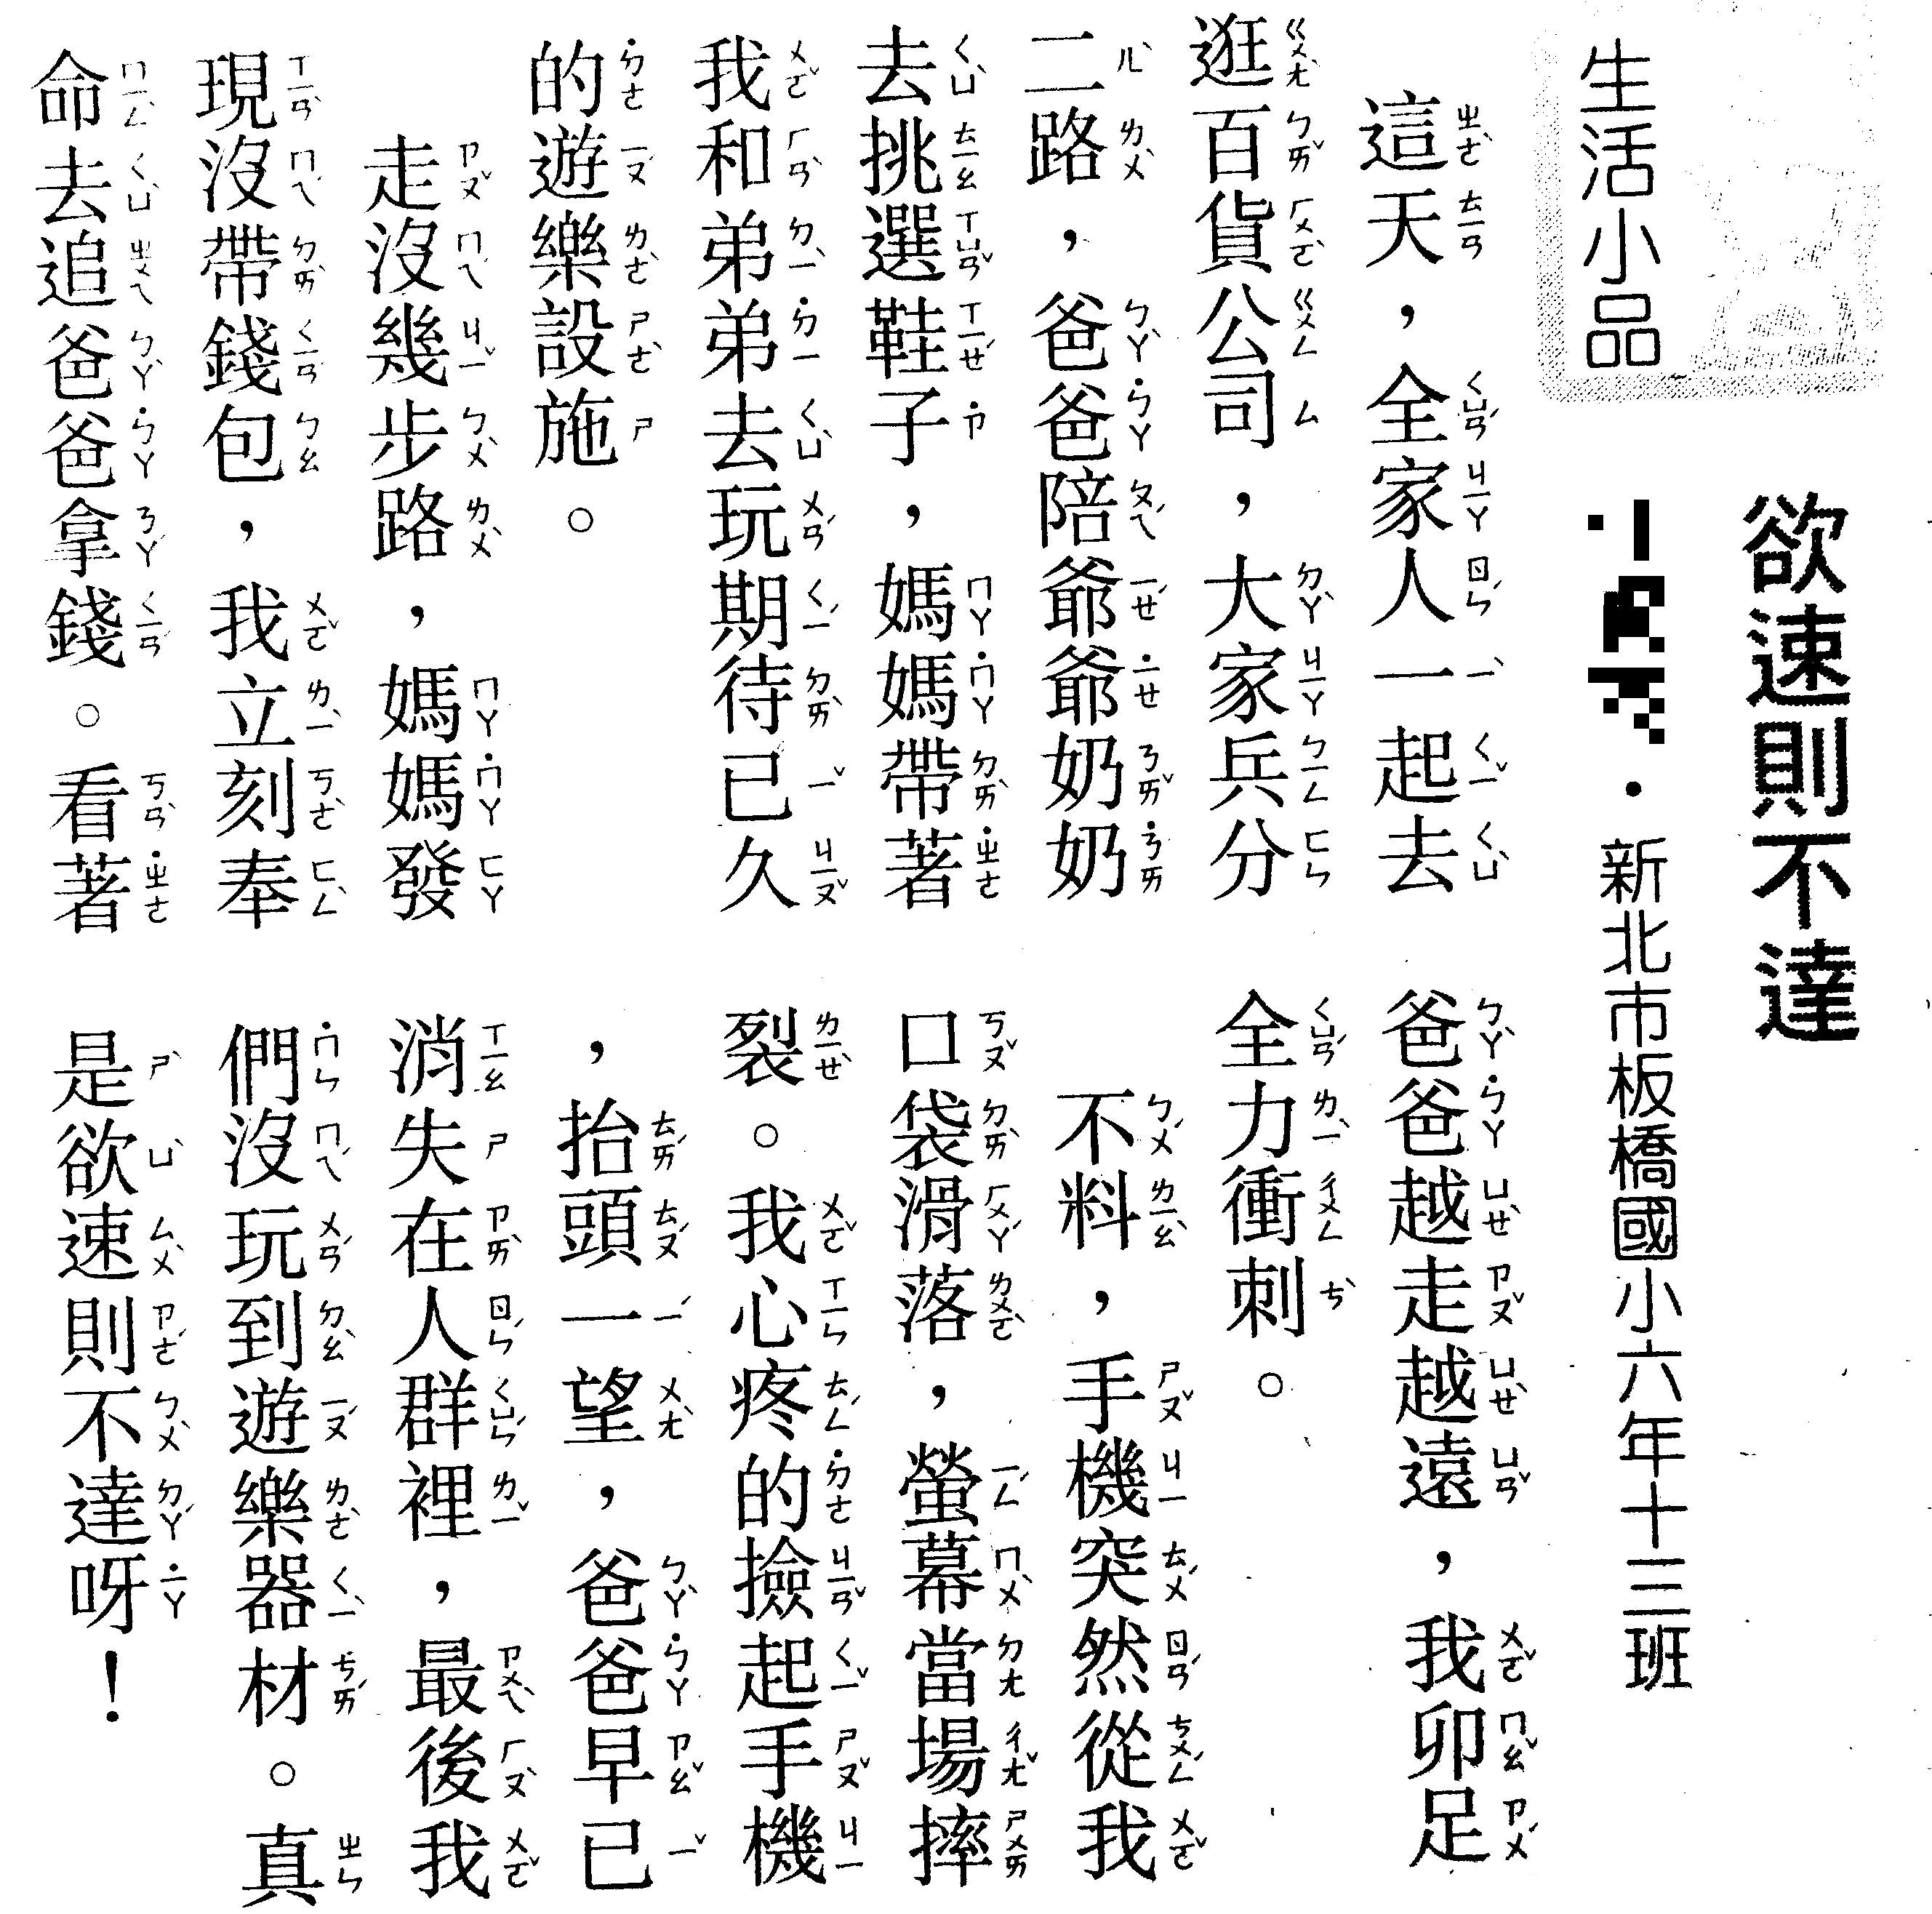 生活小品
欲速則不達
·新北市板橋國小六年十三班
這天，全家人一起去
逛百貨公司，大家兵分
二路，爸爸陪爺爺奶奶
去挑選鞋子，媽媽帶著
我和弟弟去玩期待已久
的遊樂設施。
走沒幾步路，媽媽發
現沒帶錢包，我立刻奉
命去追爸爸拿錢。看著
爸爸越走越遠，我卯足
全力衝刺。
不料，手機突然從我
口袋滑落，螢幕當場摔
裂。我心疼的撿起手機
，抬頭一望，爸爸早已
消失在人群裡，最後我
們沒玩到遊樂器材。真
是欲速則不達呀！